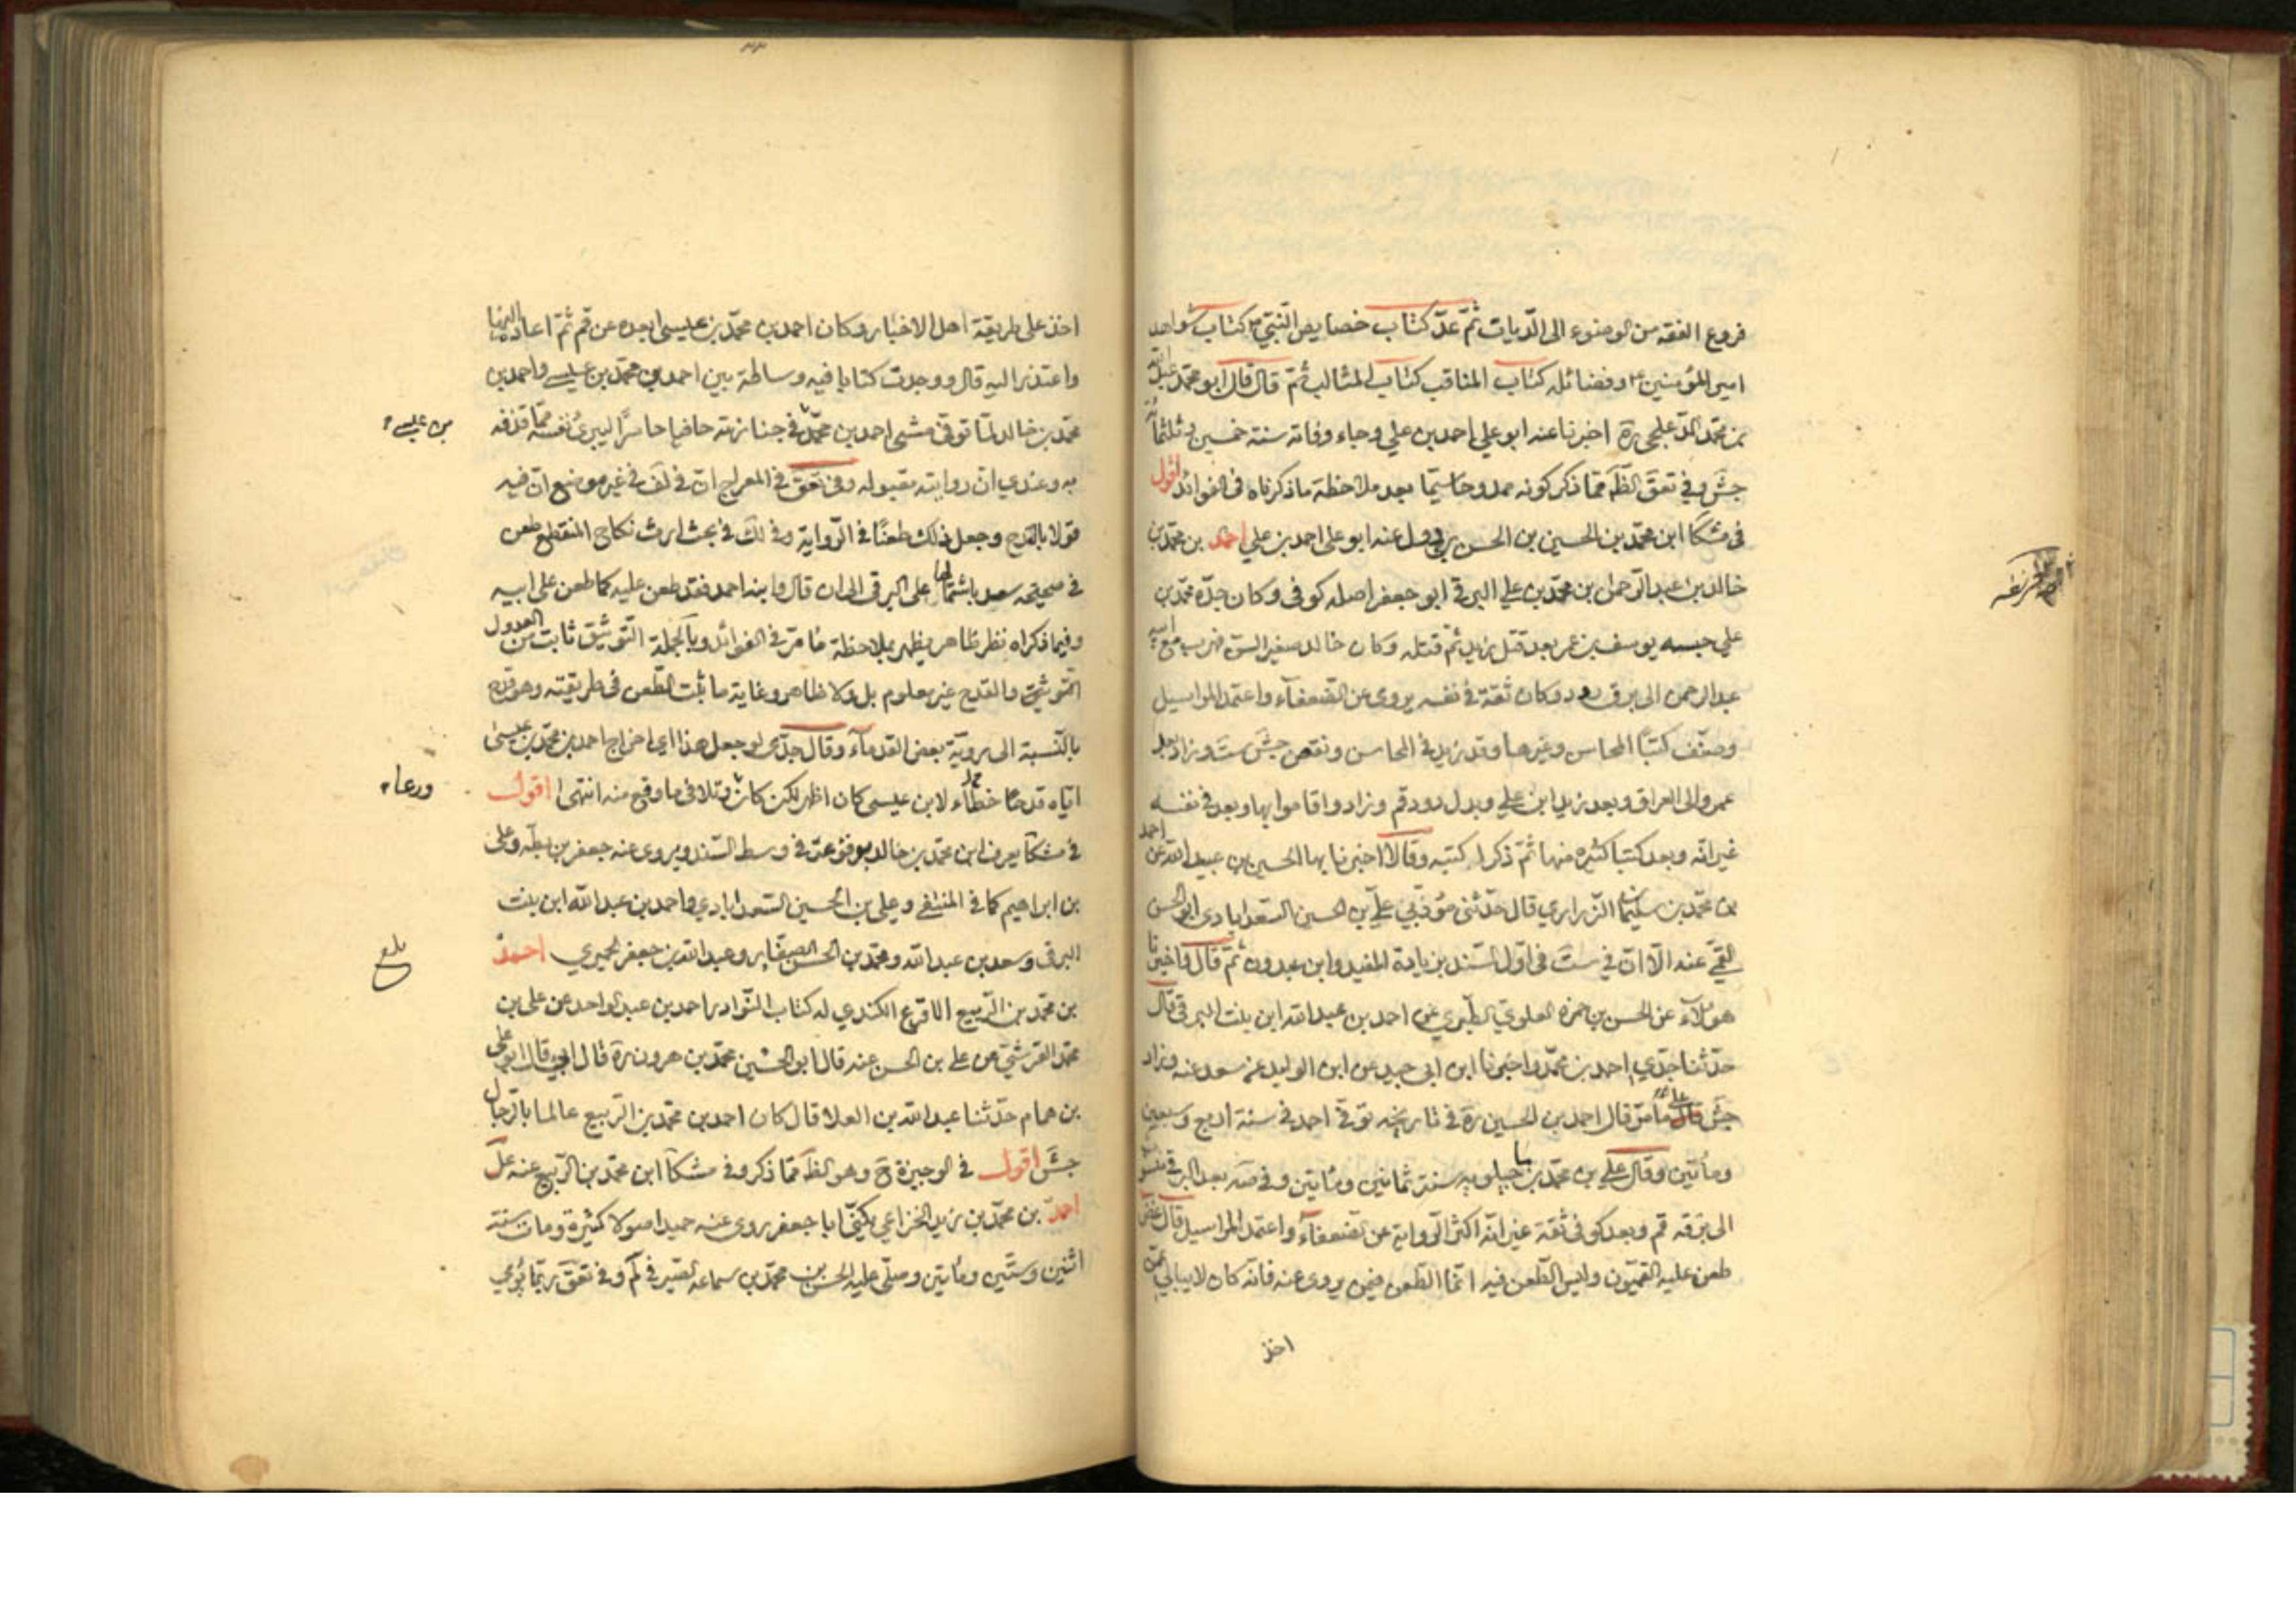 فروع الفقه من الوضوء الى الدّيات ثمّ عدّ كتاب خصايص النّبيّ ص كتاب شواهد
امير المؤمنين ع وفضائله كتاب المناقب كتاب المثالب ثمّ قال قال ابو محمّد عبد الله
بن محمّد الدّعلجي ره اخبرنا عنه ابو علي احمد بن علي وجاء وفاته سنة خمسين وثلثمائه
جش وفي تعق الظّه ممّا ذكر كونه ممدوحا سيّما بعد ملاحظة ما ذكرناه فى الفوائد اقول
فى مشكا ابن محمّد بن الحسين بن الحسن عنه ابو على احمد بن علي احمد بن محمّد بن
خالد بن عبد الرّحمن بن محمّد بن علي البرقي ابو جعفر اصله كوفى وكان جدّه محمّد بن
علي حبسه يوسف بن عمر بعد قتل زيد ثمّ قتله وكان خالد صغير السنّ فهرب مع ابيه
عبد الرحمن الى برق رود وكان ثقة فى نفسه يروى عن الضعفآء واعتمد المراسيل
وصنّف كتبًا المحاسن وغيرها وقد زيد فى المحاسن ونقص جش ست وزاد بعد
عمر والى العراق وبعد زيد ابن علي وبدل رود قم وزاد واقاموا بها وبعد فى نفسه
غير انّه وبعد كتبا كثيره منها ثمّ ذكر كتبه وقالا اخبرنا بها الحسين بن عبيد الله عن احمد
بن محمّد بن سليمان الزّراري قال حدّثنى مؤدّبي عليّ بن الحسين السّعدابادى ابو الحسن
القمّي عنه الّا انّ في ست فى اوّل السّند بزيادة المفيد وابن عبدون ثمّ قال واخبرنا
هؤلآء عن الحسن بن حمزه العلويّ الطّبري عن احمد بن عبد الله ابن بنت البرقي قال
حدّثنا جدّي احمد بن محمّد واخبرنا ابن ابى جيد عن ابن الوليد عن سعد عنه وزاد
جش قال احمد بن الحسين ره فى تاريخه توفّي احمد فى سنة اربع وسبعين
ومأتين وقال علي بن محمّد ماجيلويه سنة ثمانين ومأتين وفى صه بعد البرقي منسوب
الى برقه قم وبعد كوفى ثقة غير انّه اكثر الرّواية عن الضعفآء واعتمد المراسيل قال غض
طعن عليه القميّون وليس الطّعن فيه انّما الطّعن فيمن يروى عنه فانّه كان لا يبالي عمّن
اخذ
اخذ على طريقة اهل الاخبار وكان احمد بن محمّد بن عيسى ابعده عن قم ثمّ اعاده اليها
واعتذر اليه قال ووجدت كتابا فيه وساطة بين احمد بن محمّد بن عيسى واحمد بن
محمّد بن خالد لمّا توفّي مشى احمد بن محمّد في جنازته حافيا حاسرًا ليبرئ نفسه ممّا قذفه
بن عيسى
به وعندي ان روايته مقبوله وفى تعق في المعراج انّ في لف في غير موضع انّ فيه
قولا بالقدح وجعل ذلك طعنًا في الرّواية وفي لك في بحث ارث نكاح المنقطع طعن
في صحيحة سعد باشتمالها على البرقى الى ان قال وابنه احمد فقد طعن عليه كما طعن على ابيه
وفيما ذكراه نظر ظاهر يظهر بملاحظة ما مرّ في الفوائد وبالجملة التّوثيق ثابت من العدول
التّوثيق والقدح غير معلوم بل ولا ظاهر وغاية ما ثبت الطّعن فى طريقته وهو قدح
بالنّسبة الى رويّة بعض القدمآء وقال جدّى لو جعل هذا اى اخراج احمد بن محمّد بن عيسى
ايّاه قدحا خطآء لابن عيسى كان اظهر لكن كان وتلافى ما وقع منه انتهى اقول
ورعا
في مشكا يعرف ابن محمّد بن خالد بوقوعه في وسط السّند ويروى عنه جعفر بن بطّه وعلى
بن ابراهيم كما في المنتقى وعلي بن الحسين السّعدابادي واحمد بن عبد الله ابن بنت
البرقى وسعد بن عبد الله ومحمّد بن الحسن الصفّار وعبد الله بن جعفر الحميري احمد
بلغ
بن محمّد بن الرّبيع الاقرع الكندي له كتاب النّوادر احمد بن عبد الواحد عن على بن
محمّد القرشيّ عن على بن الحسن عنه قال ابو الحسين محمّد بن هرون ره قال ابي قال ابو على
بن همام حدّثنا عبد الله بن العلا قال كان احمد بن محمّد بن الرّبيع عالما بالرّجال
جش اقول في الوجيزة ح وهو الظّه ممّا ذكر وفي مشكا ابن محمّد بن الرّبيع عنه عل
احمد بن محمّد بن زيد الخزاعي يكنّى ابا جعفر روى عنه حميد اصولا كثيرة ومات سنة
اثنين وستّين ومأتين وصلّى عليه الحسن بن محمّد بن سماعه الصيرفي لم وفي تعق ربّما يؤمي